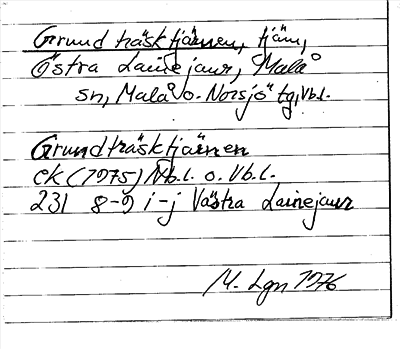 Grundträsktjärnen, tjärn,
Östra Lainejaur, Malå
sn, Malå o. Norsjö tg, Vb.l.
Grundträsktjärnen
ek (1975) Nb.l. o. Vb.l.
231 8-9 i-j Västra Lainejaur
M. Lgn 1976